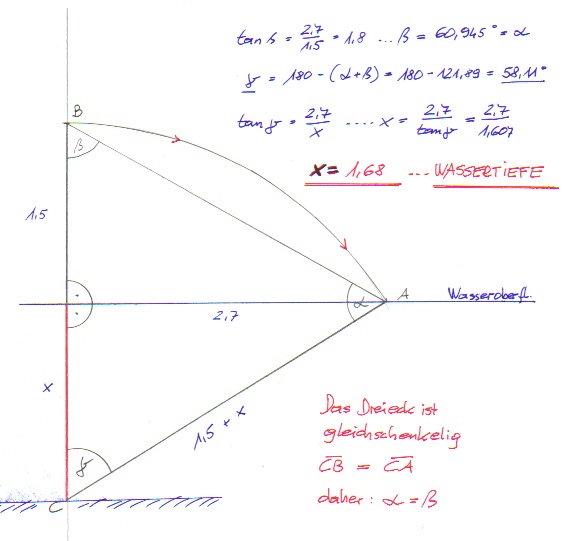 tan β = 2,7/1,5 = 1,8 ... β = 60,945° = α
γ = 180 - (α+β) = 180 - 121,89 = 58,11°
tan γ = 2,7/x .... x = 2,7/tan γ = 2,7/1,607
x = 1,68 ... WASSERTIEFE
B
β
1,5
α
A
Wasseroberfl.
2,7
x
1,5 + x
γ
C
Das Dreieck ist
gleichschenkelig
CB = CA
daher : α = β